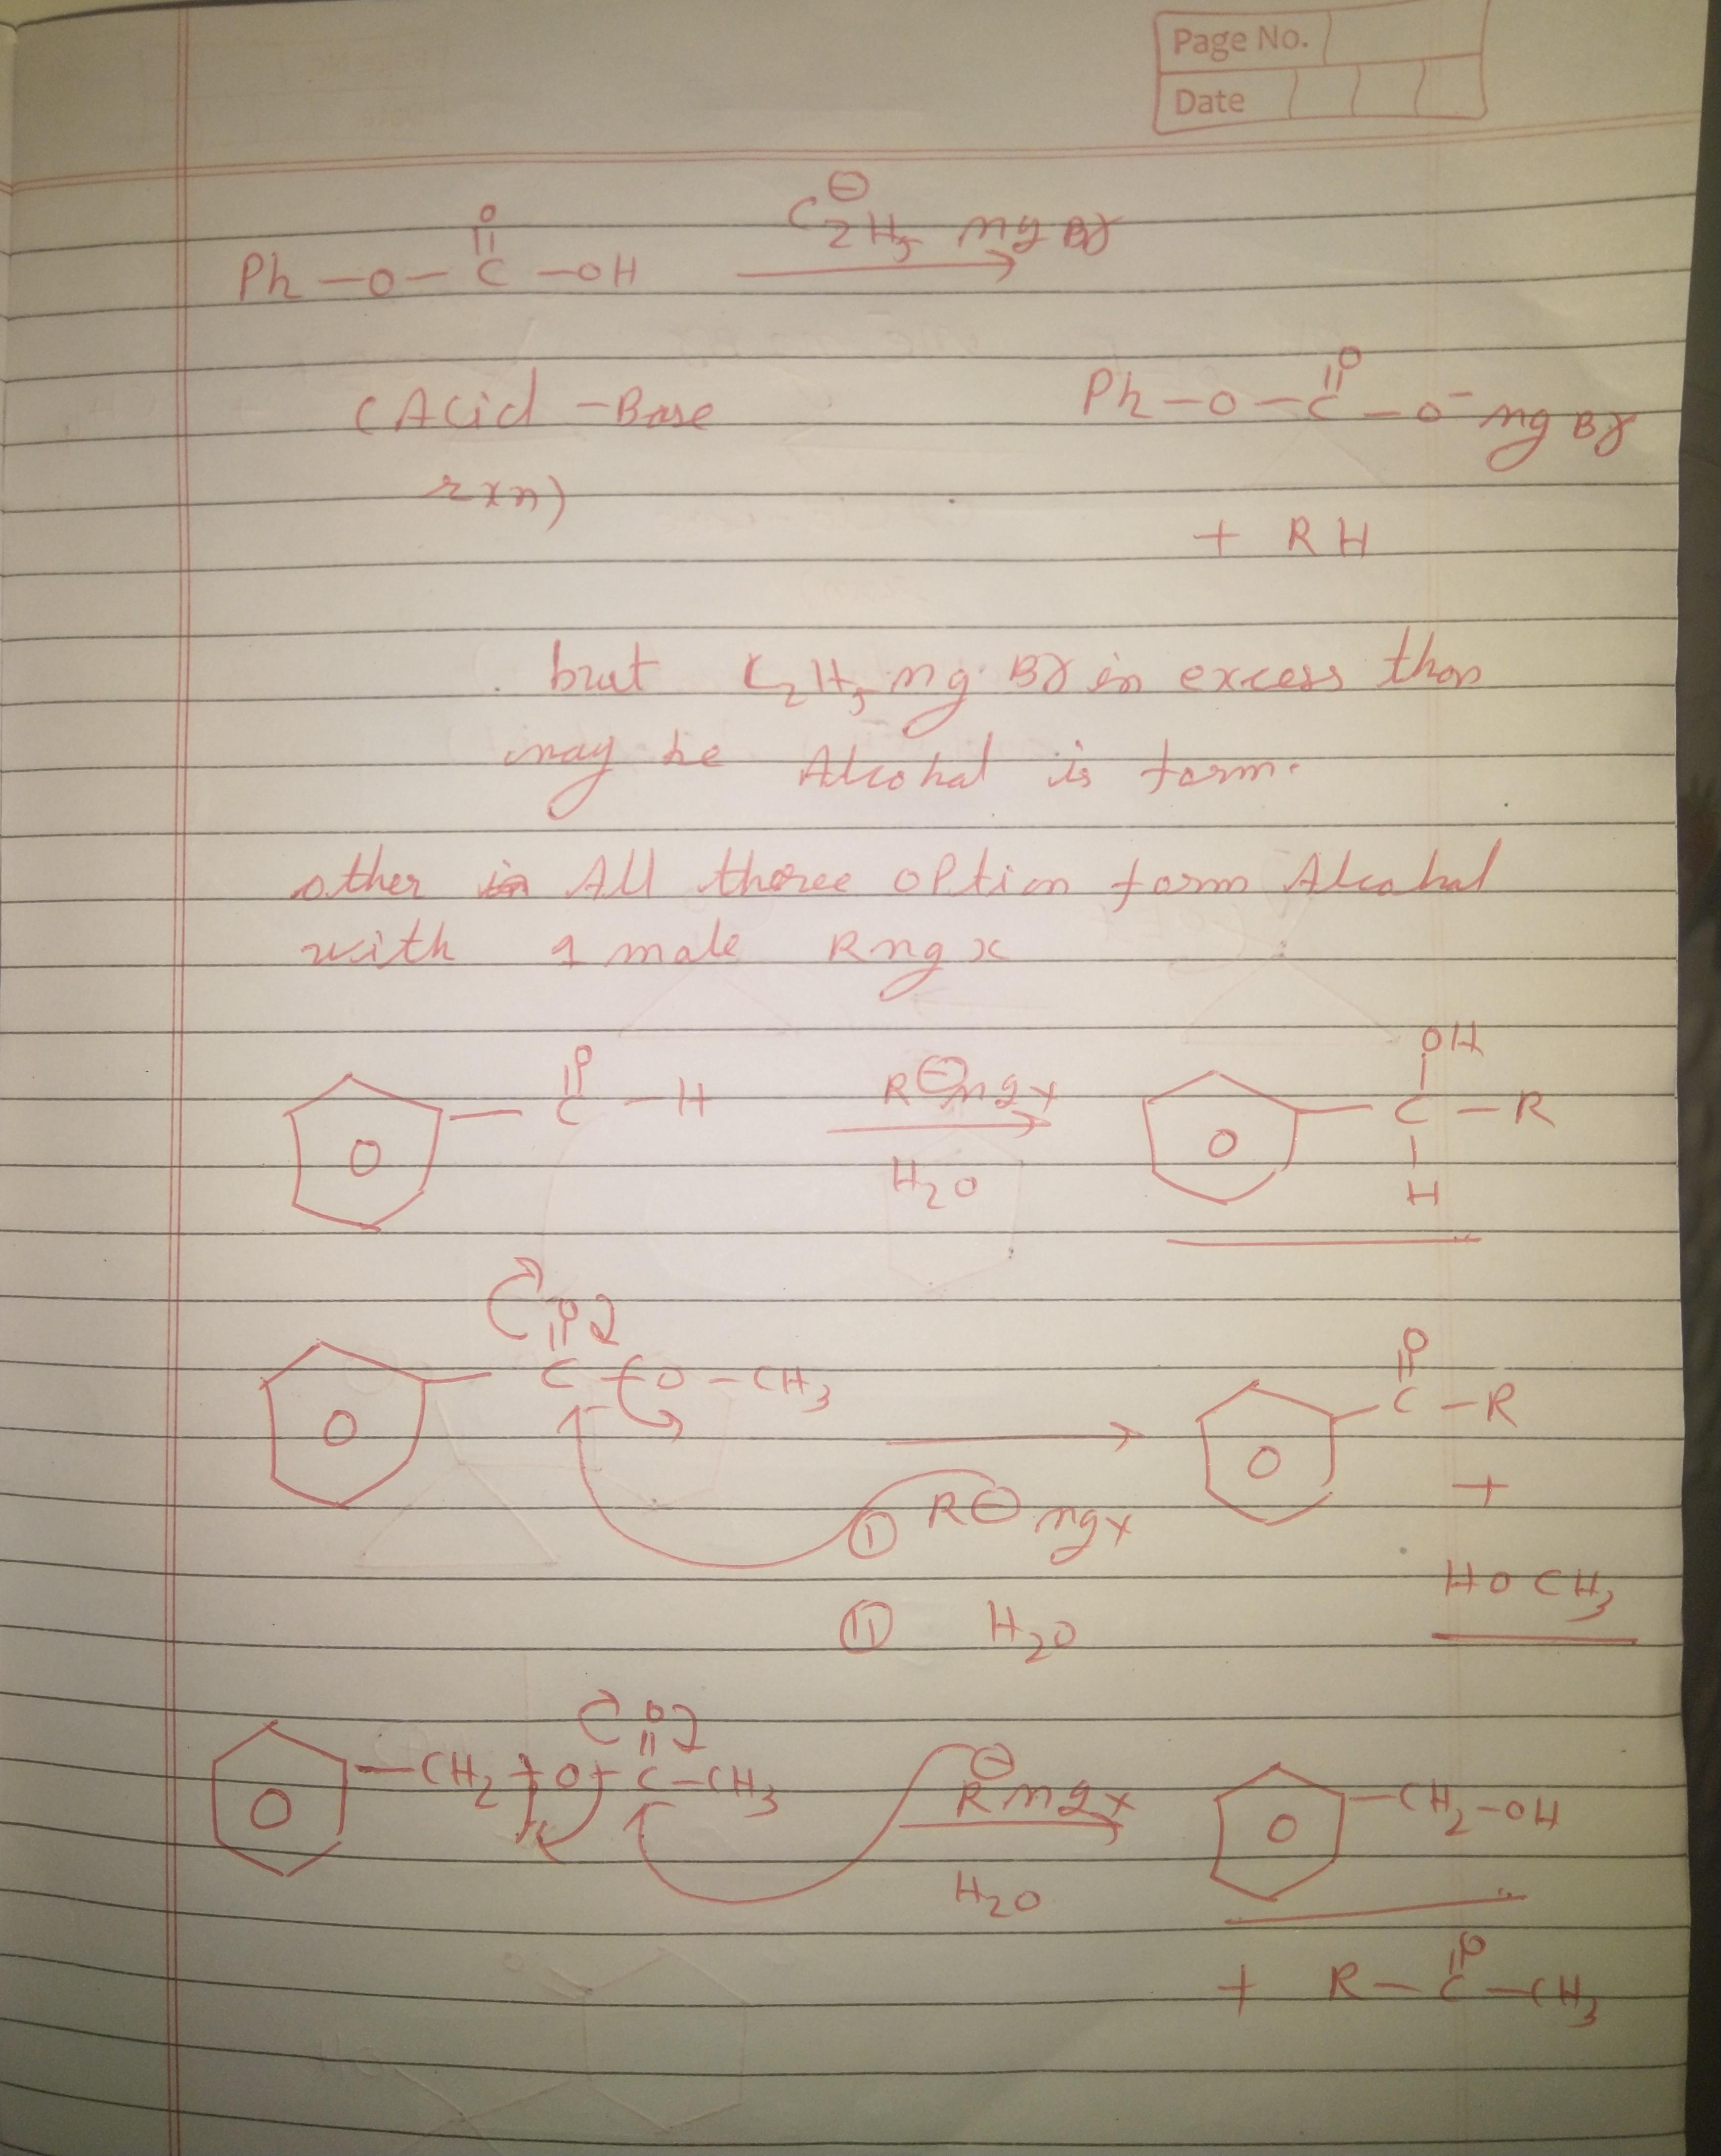 Page No.
Date
Ph-O-C(=O)-OH → C2H5⊖ mg Br
(Acid-Base
rxn)
Ph-O-C(=O)-O⁻ mg Br
+ RH
but C2H5 mg Br in excess than
may be Alcohal is form.
other in All thoree option form Alcohal
with 1 mole Rmgx
C(=O)-H → R⊖mgx / H2O
OH
C-R
H
C(=O)-O-CH3 → C(=O)-R
+
① R⊖ mgx
HOCH3
② H2O
CH2-O-C(=O)-CH3 → R⊖mgx / H2O CH2-OH
+ R-C(=O)-CH3